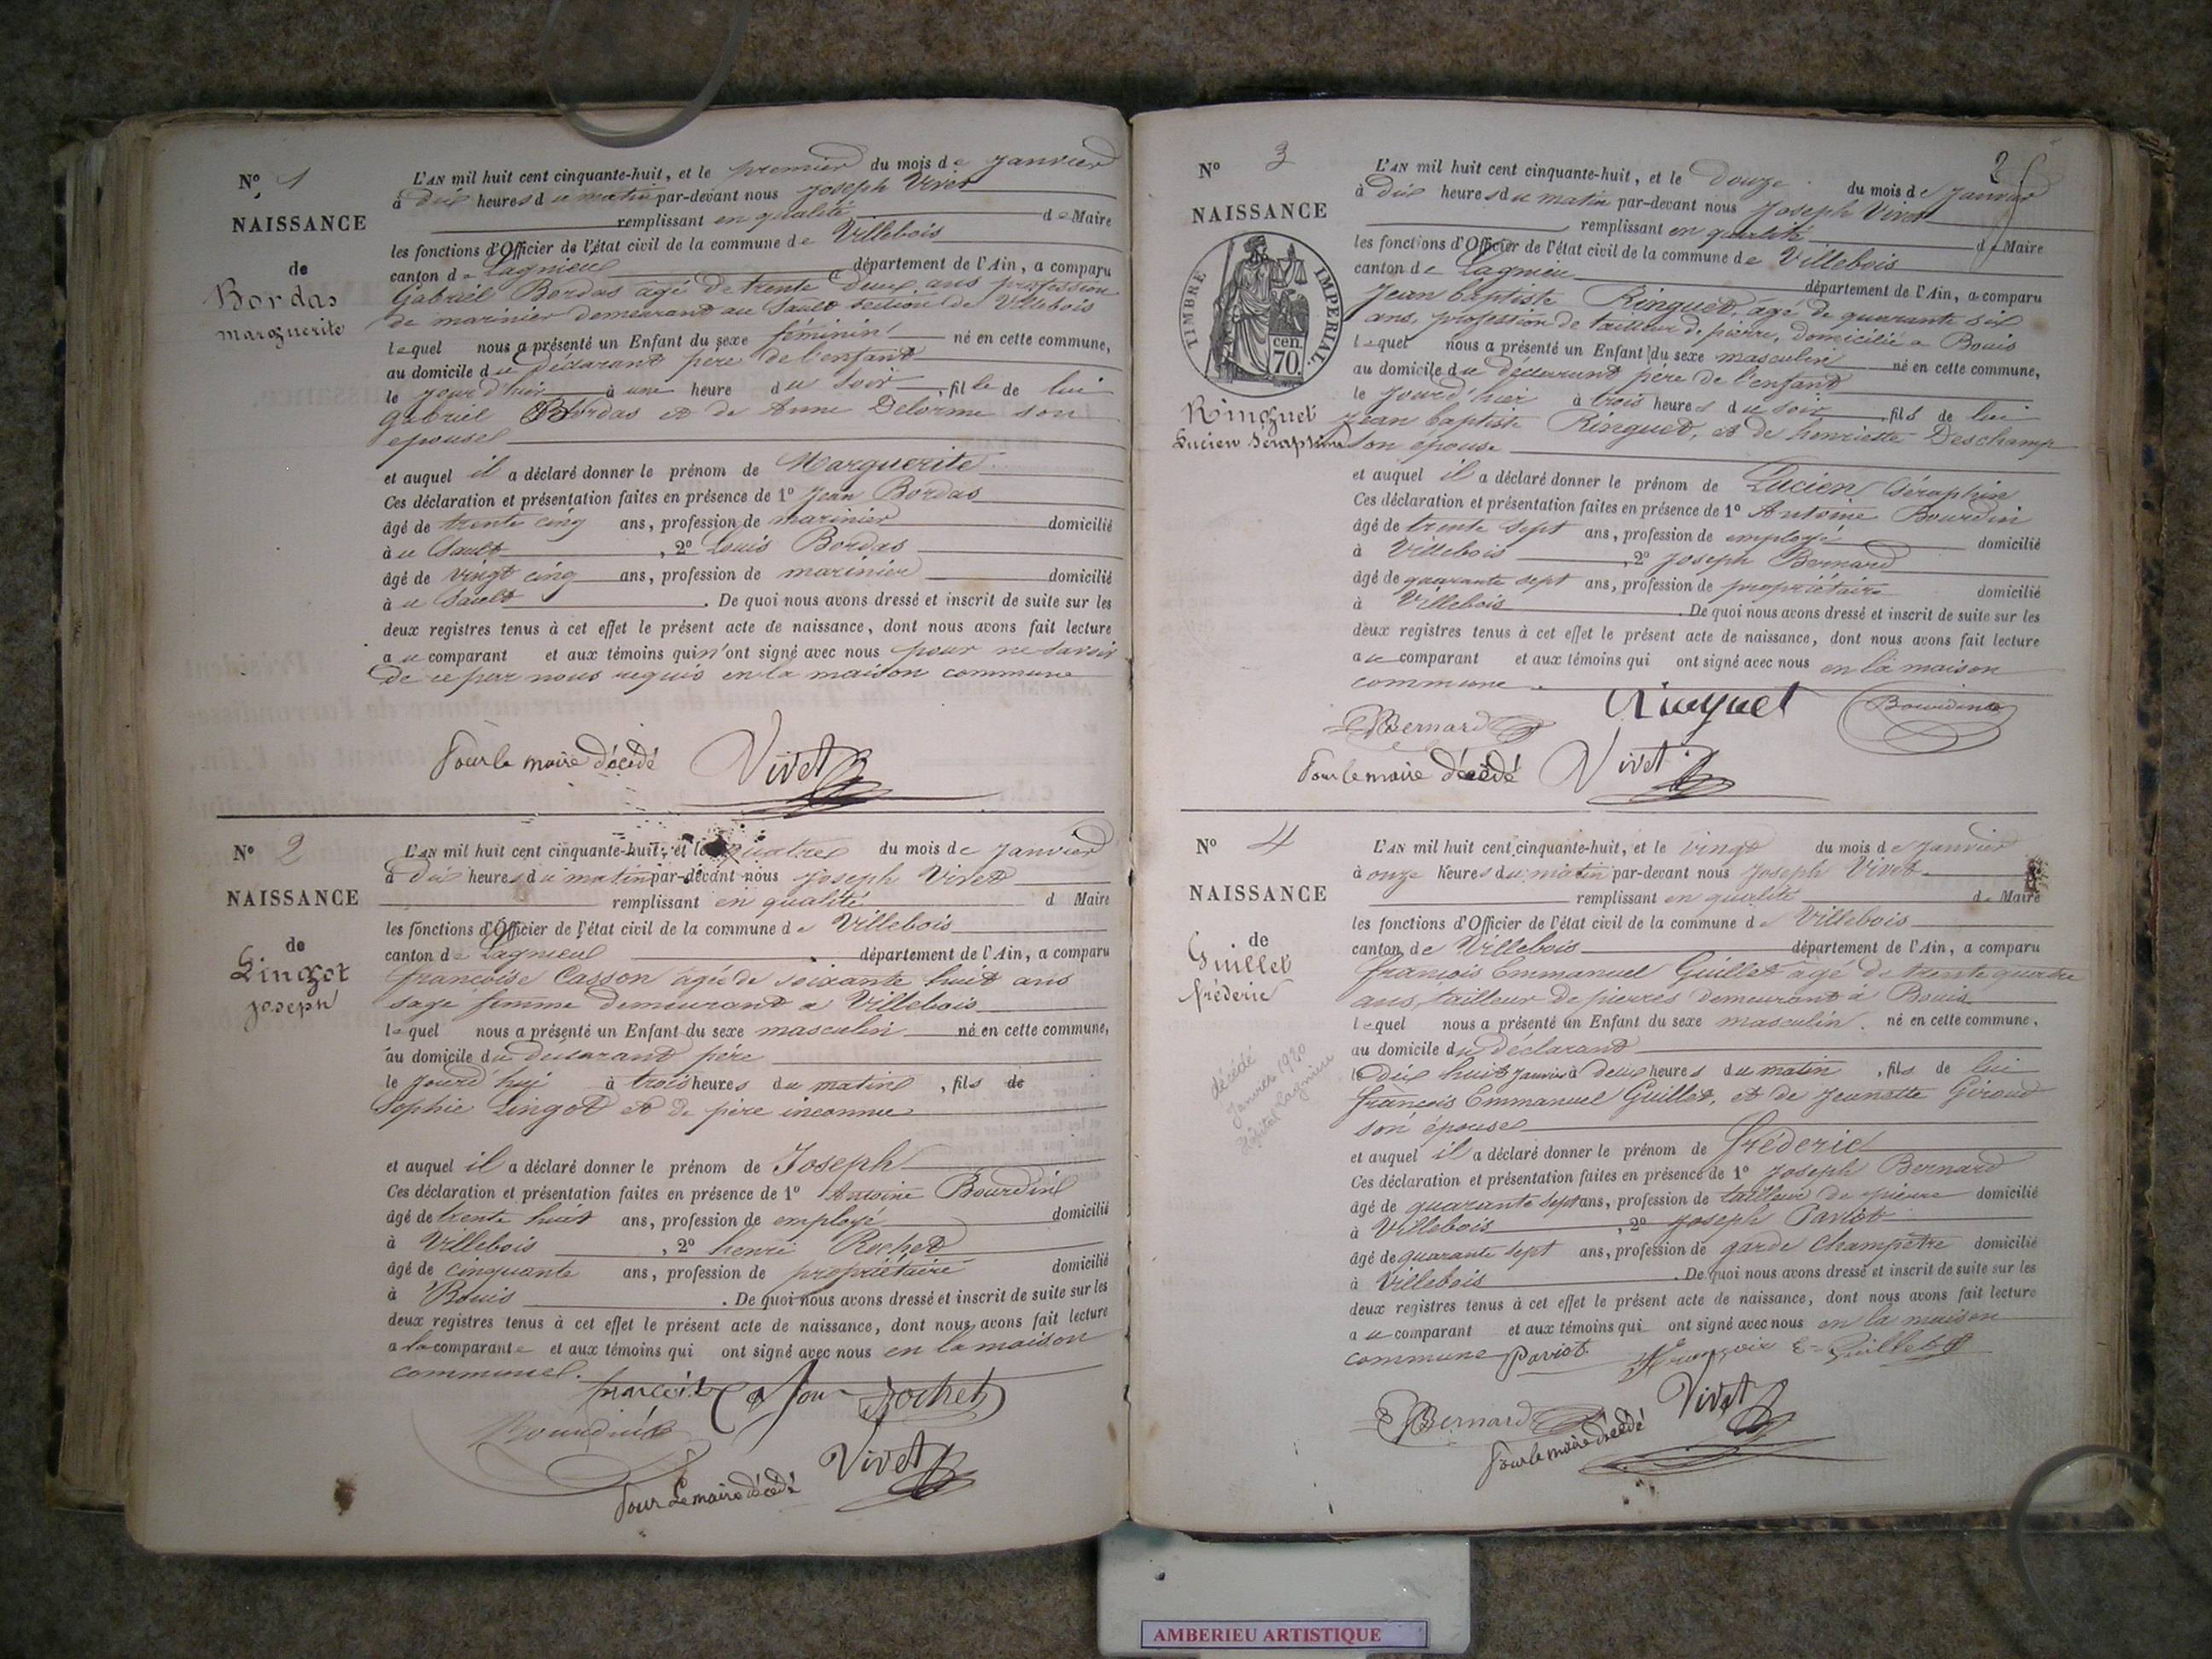 N° 1
NAISSANCE
de
Bordas
marguerite
L'AN mil huit cent cinquante-huit, et le premier du mois de Janvier
à dix heures du matin par-devant nous Joseph Vivet
remplissant en qualité de Maire
les fonctions d'Officier de l'état civil de la commune de Villebois
canton de Lagnieu département de l'Ain, a comparu
Gabriel Bordas agé de trente deux ans profession
de marinier demeurant au Sault section de Villebois
lequel nous a présenté un Enfant du sexe féminin né en cette commune,
au domicile du déclarant père de l'enfant
le jourd'hier à une heure du soir, fille de lui
Gabriel Bordas et de Anne Delorme son
epouse
et auquel il a déclaré donner le prénom de Marguerite
Ces déclaration et présentation faites en présence de 1° Jean Bordas
âgé de trente cinq ans, profession de marinier domicilié
à u Sault, 2° Louis Bordas
âgé de vingt cinq ans, profession de marinier domicilié
à u Sault. De quoi nous avons dressé et inscrit de suite sur les
deux registres tenus à cet effet le présent acte de naissance, dont nous avons fait lecture
au comparant et aux témoins qui n'ont signé avec nous pour ne savoir
de ce par nous requis en la maison commune
Pour le maire décédé Vivet
N° 2
NAISSANCE
de
Lingot
joseph
L'AN mil huit cent cinquante-huit, et le quatre du mois de Janvier
à dix heures du matin par-devant nous Joseph Vivet
remplissant en qualité d Maire
les fonctions d'Officier de l'état civil de la commune de Villebois
canton de Lagnieu département de l'Ain, a comparu
françoise Casson agée de soixante huit ans
sage femme demeurant a Villebois
lequel nous a présenté un Enfant du sexe masculin né en cette commune,
au domicile du déclarant père
le jourd'hui à trois heures du matin, fils de
Sophie Lingot et de père inconnu
et auquel il a déclaré donner le prénom de Joseph
Ces déclaration et présentation faites en présence de 1° Antoine Bourdin
âgé de trente huit ans, profession de employé domicilié
à Villebois, 2° henri Rochet
âgé de cinquante ans, profession de propriétaire domicilié
à Bouis. De quoi nous avons dressé et inscrit de suite sur les
deux registres tenus à cet effet le présent acte de naissance, dont nous avons fait lecture
a la comparante et aux témoins qui ont signé avec nous en la maison
commune.
françoise Casson Rochet
Bourdin
Pour Le maire décédé Vivet
2
N° 3
NAISSANCE
TIMBRE IMPÉRIAL.
70 cen.
Ringuet
Lucien Séraphin
L'AN mil huit cent cinquante-huit, et le douze du mois de Janvier
à dix heures du matin par-devant nous Joseph Vivet
remplissant en qualité de Maire
les fonctions d'Officier de l'état civil de la commune de Villebois
canton de Lagnieu département de l'Ain, a comparu
Jean baptiste Ringuet, agé de quarante six
ans, profession de tailleur de pierre, domicilié a Bouis
lequel nous a présenté un Enfant du sexe masculin né en cette commune,
au domicile du déclarant père de l'enfant
le jourd'hier à trois heures du soir, fils de lui
Jean baptiste Ringuet, et de henriette Deschamp
son épouse
et auquel il a déclaré donner le prénom de Lucien Séraphin
Ces déclaration et présentation faites en présence de 1° Antoine Bourdin
âgé de trente sept ans, profession de employé domicilié
à Villebois, 2° Joseph Bernard
âgé de quarante sept ans, profession de propriétaire domicilié
à Villebois. De quoi nous avons dressé et inscrit de suite sur les
deux registres tenus à cet effet le présent acte de naissance, dont nous avons fait lecture
au comparant et aux témoins qui ont signé avec nous en la maison
commune.
Bernard Ringuet Bourdin
Pour le maire décédé Vivet
N° 4
NAISSANCE
de
Guillet
fréderic
décédé
Janvier 1930
Hôpital Lagnieu
L'AN mil huit cent cinquante-huit, et le vingt du mois de Janvier
à onze heures du matin par-devant nous Joseph Vivet
remplissant en qualité de Maire
les fonctions d'Officier de l'état civil de la commune de Villebois
canton de Villebois département de l'Ain, a comparu
françois Emmanuel Guillet agé de trente quatre
ans, tailleur de pierres demeurant à Bouis
lequel nous a présenté un Enfant du sexe masculin né en cette commune,
au domicile du déclarant
le dix huit Janvier à deux heures du matin, fils de lui
françois Emmanuel Guillet, et de Jeanette Giroud
son épouse
et auquel il a déclaré donner le prénom de fréderic
Ces déclaration et présentation faites en présence de 1° Joseph Bernard
âgé de quarante sept ans, profession de tailleur de pierre domicilié
à Villebois, 2° Joseph Paviot
âgé de quarante sept ans, profession de garde champêtre domicilié
à Villebois. De quoi nous avons dressé et inscrit de suite sur les
deux registres tenus à cet effet le présent acte de naissance, dont nous avons fait lecture
au comparant et aux témoins qui ont signé avec nous en la maison
commune Paviot françois E Guillet
Bernard Vivet
Pour le maire décédé
AMBERIEU ARTISTIQUE